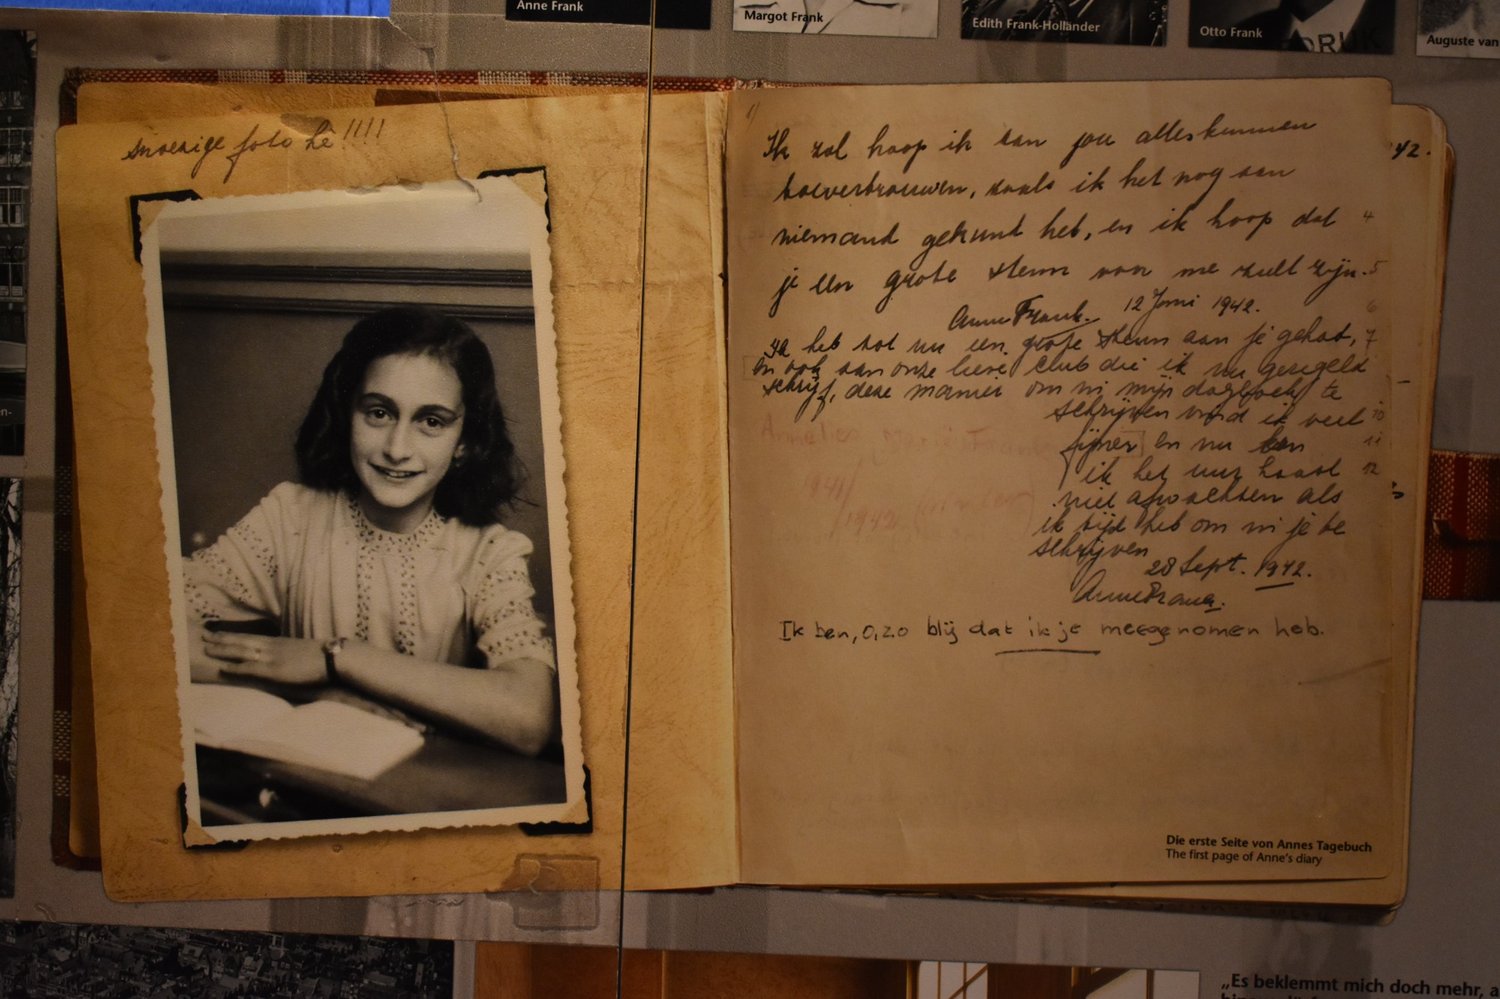 Anne Frank
Margot Frank
Edith Frank-Holländer
Otto Frank
Auguste van
DRUK
foto hè!!!!
Ik zal hoop ik aan jou alles kunnen
toevertrouwen, zoals ik het nog aan
niemand gekunt heb, en ik hoop dat
je een grote steun voor me zult zijn.
Anne Frank. 12 Juni 1942.
Ik heb tot nu een grote steun aan je gehad,
en ook aan onze lieve club die ik nu geregeld
schrijf, deze manier om in mijn dagboek te
schrijven vind ik veel
fijner en nu kan
ik het uur haast
niet afwachten als
ik tijd heb om in je te
schrijven
28 Sept. 1942.
Anne Frank.
Ik ben, o, zo blij dat ik je meegenomen heb.
42.
4
5
6
7
10
11
12
Die erste Seite von Annes Tagebuch
The first page of Anne's diary
„Es beklemmt mich doch mehr, a